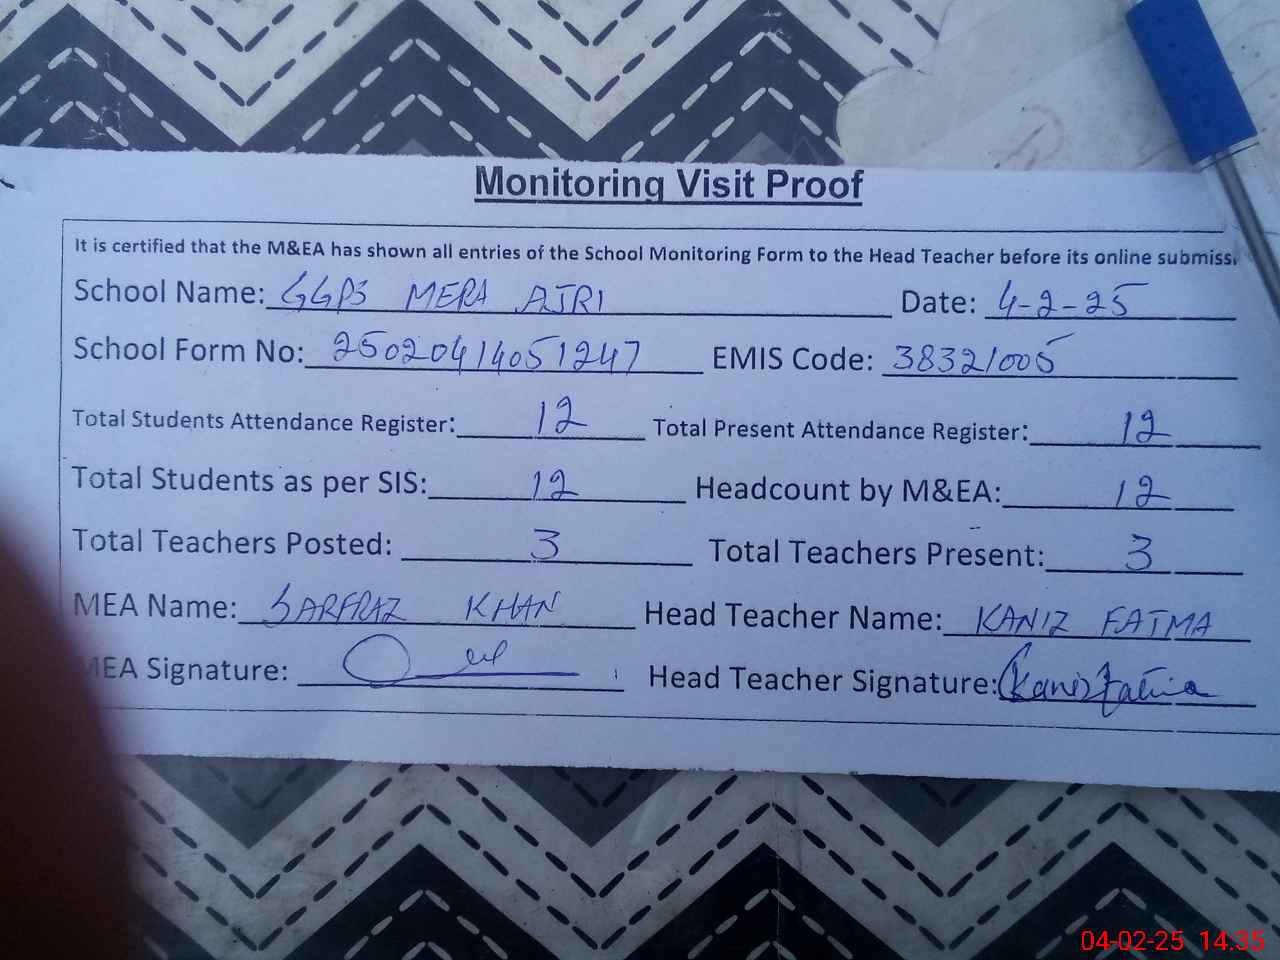 Monitoring Visit Proof
It is certified that the M&EA has shown all entries of the School Monitoring Form to the Head Teacher before its online submiss
School Name: GGPS MERA AJRI Date: 4-2-25
School Form No: 25020414051247 EMIS Code: 38321005
Total Students Attendance Register: 12 Total Present Attendance Register: 12
Total Students as per SIS: 12 Headcount by M&EA: 12
Total Teachers Posted: 3 Total Teachers Present: 3
MEA Name: SARFRAZ KHAN Head Teacher Name: KANIZ FATMA
MEA Signature: Head Teacher Signature: Kaniz Fatima
04-02-25 14:35